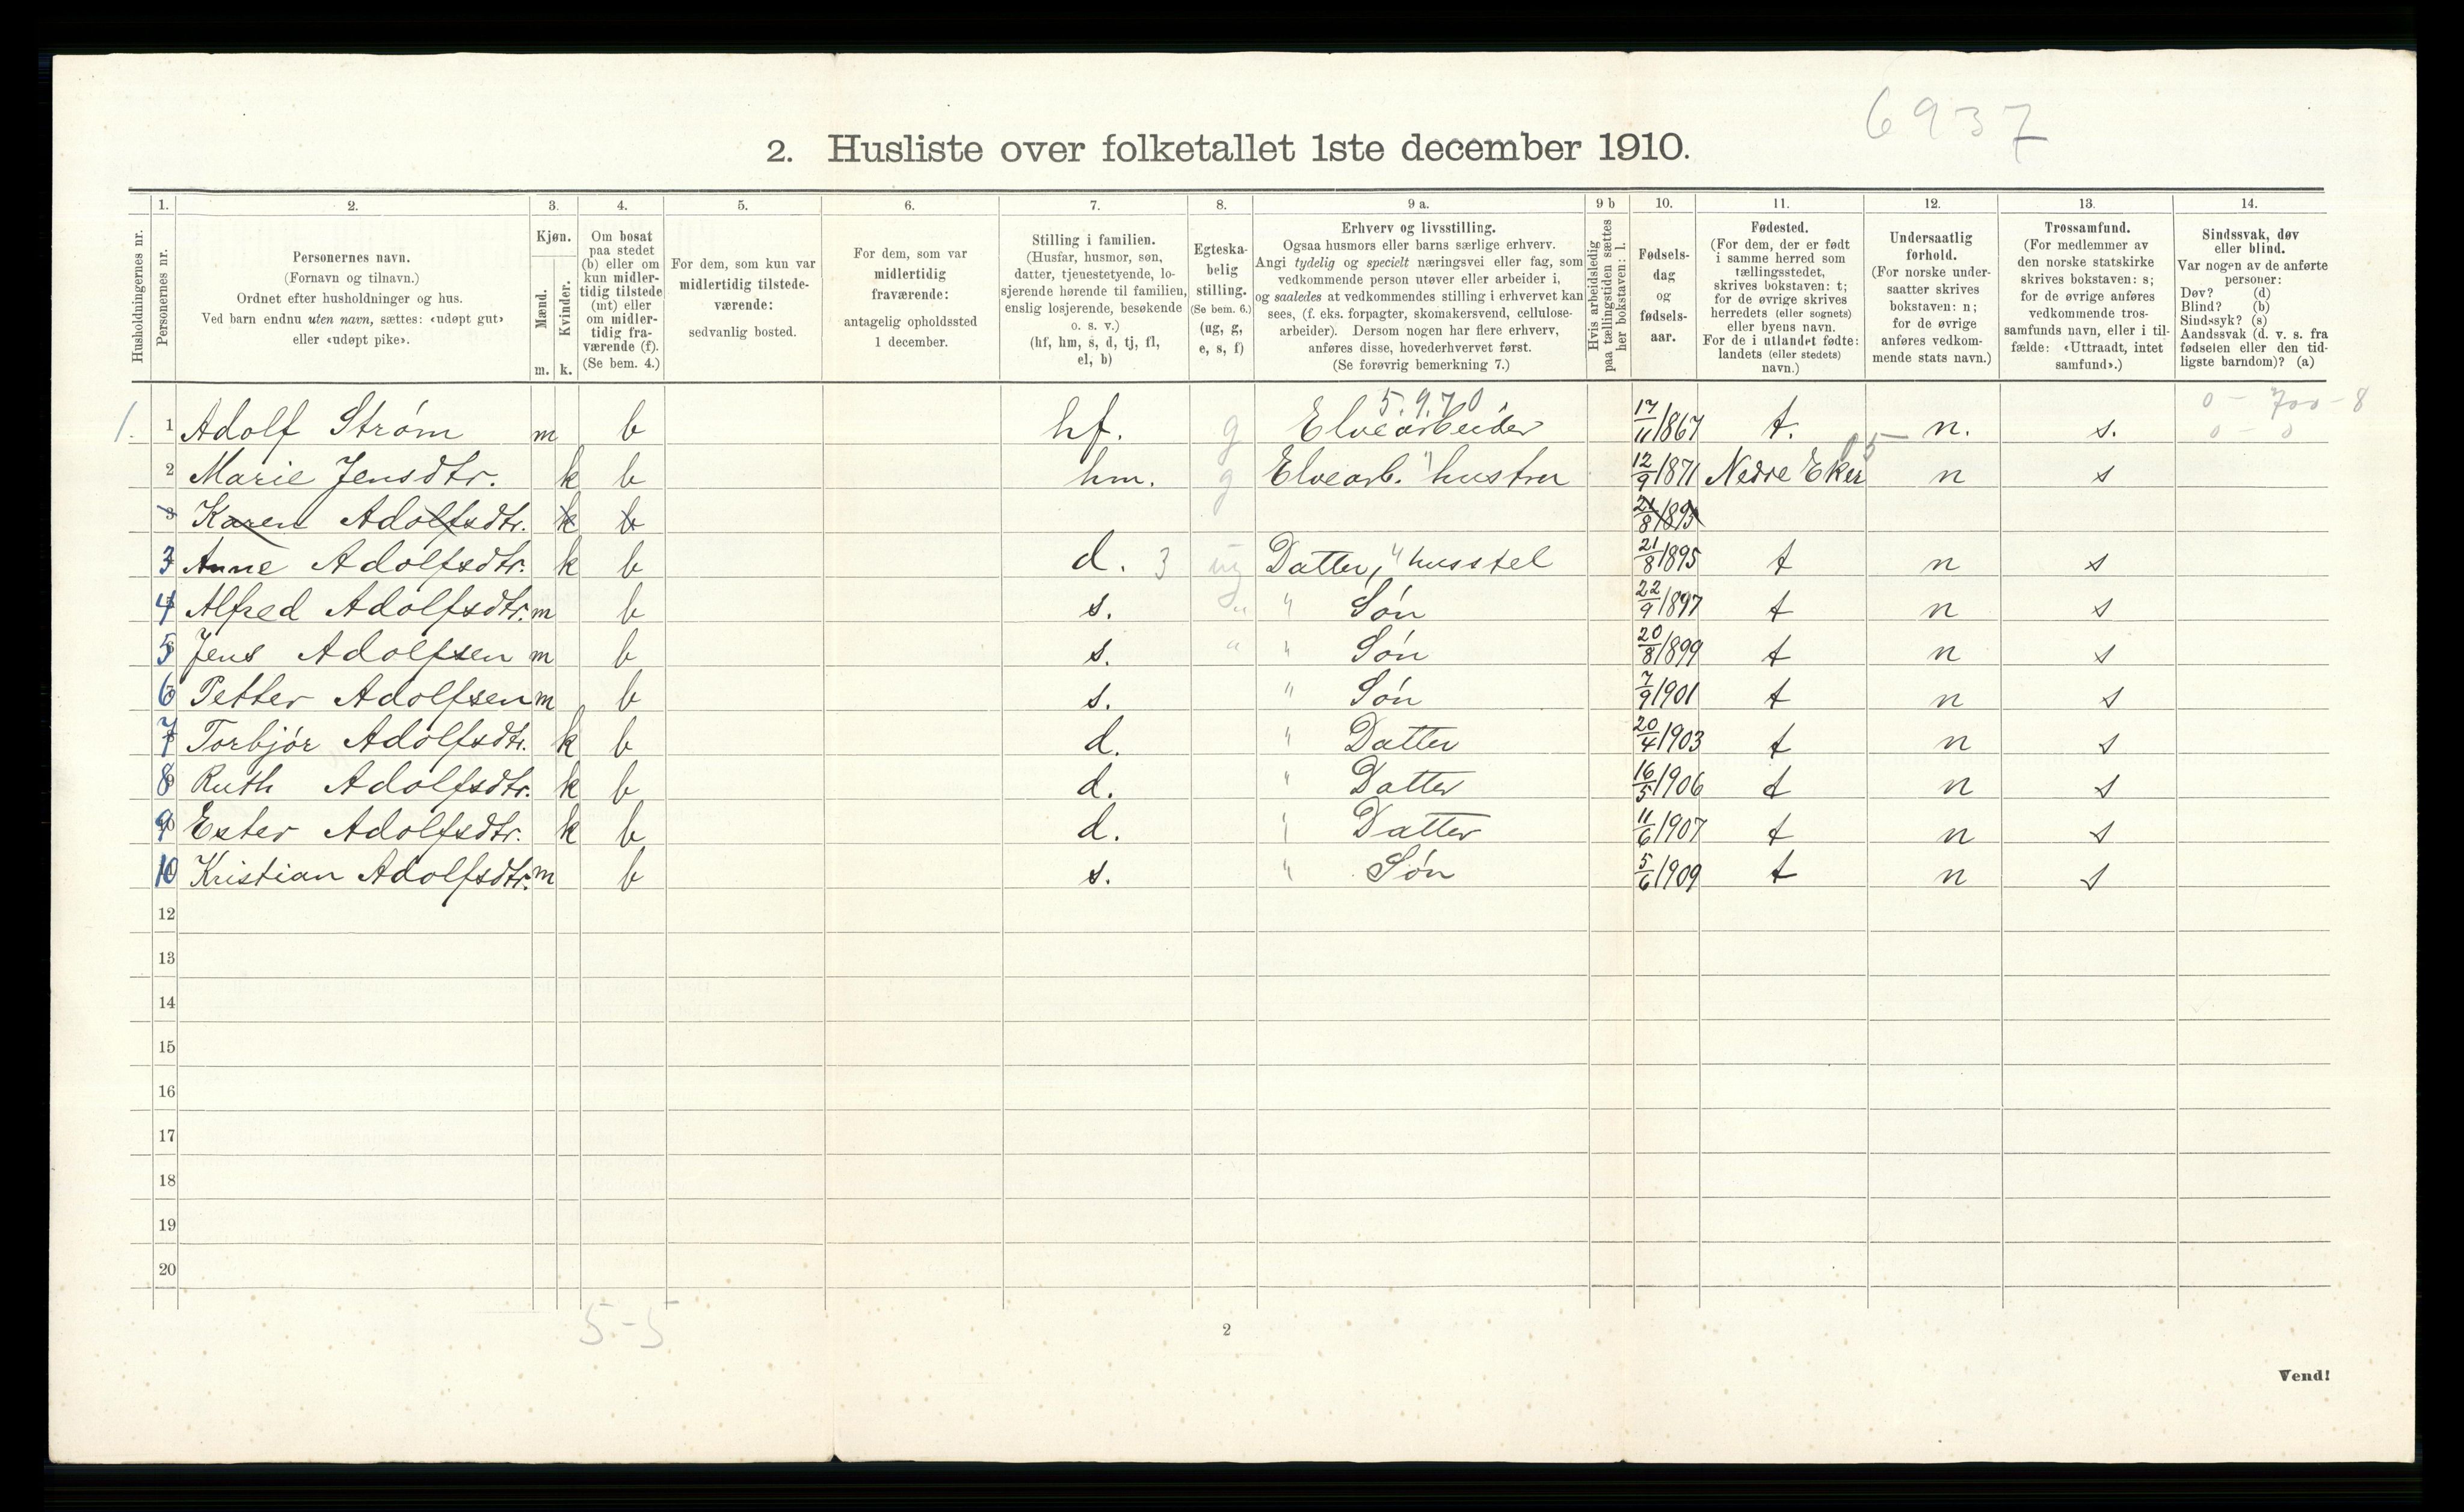 6937
2. Husliste over folketallet 1ste december 1910.
1. 2. 3. 4. 5. 6. 7. 8. 9 a. 9 b 10. 11. 12. 13. 14.
Husholdningernes nr.
Personernes nr.
Personernes navn.
(Fornavn og tilnavn.)
Ordnet efter husholdninger og hus.
Ved barn endnu uten navn, sættes: «udøpt gut»
eller «udøpt pike».
Kjøn.
Mænd.
Kvinder.
m. k.
Om bosat
paa stedet
(b) eller om
kun midler-
tidig tilstede
(mt) eller
om midler-
tidig fra-
værende (f).
(Se bem. 4.)
For dem, som kun var
midlertidig tilstede-
værende:
sedvanlig bosted.
For dem, som var
midlertidig
fraværende:
antagelig opholdssted
1 december.
Stilling i familien.
(Husfar, husmor, søn,
datter, tjenestetyende, lo-
sjerende hørende til familien,
enslig losjerende, besøkende
o. s. v.)
(hf, hm, s, d, tj, fl,
el, b)
Egteska-
belig
stilling.
(Se bem. 6.)
(ug, g,
e, s, f)
Erhverv og livsstilling.
Ogsaa husmors eller barns særlige erhverv.
Angi tydelig og specielt næringsvei eller fag, som
vedkommende person utøver eller arbeider i,
og saaledes at vedkommendes stilling i erhvervet kan
sees, (f. eks. forpagter, skomakersvend, cellulose-
arbeider). Dersom nogen har flere erhverv,
anføres disse, hovederhvervet først.
(Se forøvrig bemerkning 7.)
Hvis arbeidsledig
paa tællingstiden sættes
her bokstaven: l.
Fødsels-
dag
og
fødsels-
aar.
Fødested.
(For dem, der er født
i samme herred som
tællingsstedet,
skrives bokstaven: t;
for de øvrige skrives
herredets (eller sognets)
eller byens navn.
For de i utlandet fødte:
landets (eller stedets)
navn.)
Undersaatlig
forhold.
(For norske under-
saatter skrives
bokstaven: n;
for de øvrige
anføres vedkom-
mende stats navn.)
Trossamfund.
(For medlemmer av
den norske statskirke
skrives bokstaven: s;
for de øvrige anføres
vedkommende tros-
samfunds navn, eller i til-
fælde: «Uttraadt, intet
samfund».)
Sindssvak, døv
eller blind.
Var nogen av de anførte
personer:
Døv? (d)
Blind? (b)
Sindssyk? (s)
Aandssvak (d. v. s. fra
fødselen eller den tid-
ligste barndom)? (a)
5.9.70 0 - 700 - 8
1. 1 Adolf Strøm m b hf. g Elvearbeider 17/11 1867 t. n. s. 0 - 0
05
2 Marie Jensdtr. k b hm. g Elvearb. " hustru 12/9 1871 Nedre Eker n s
3 Karen Adolfsdtr. k b 21/8 1895
3 Anne Adolfsdtr. k b d. 3 ug Datter, " husstel 21/8 1895 t n s
4 Alfred Adolfsdtr. m b s. " " Søn 22/9 1897 t n s
5 Jens Adolfsen m b s. " " Søn 20/8 1899 t n s
6 Petter Adolfsen m b s. " Søn 7/9 1901 t n s
7 Torbjør Adolfsdtr. k b d. " Datter 20/4 1903 t n s
8 Ruth Adolfsdtr. k b d. " Datter 16/5 1906 t n s
9 Ester Adolfsdtr. k b d. " Datter 11/6 1907 t n s
10 Kristian Adolfsdtr. m b s. " Søn 5/6 1909 t n s
12
13
14
15
16
17
18
19
20
5-5
2
Vend!